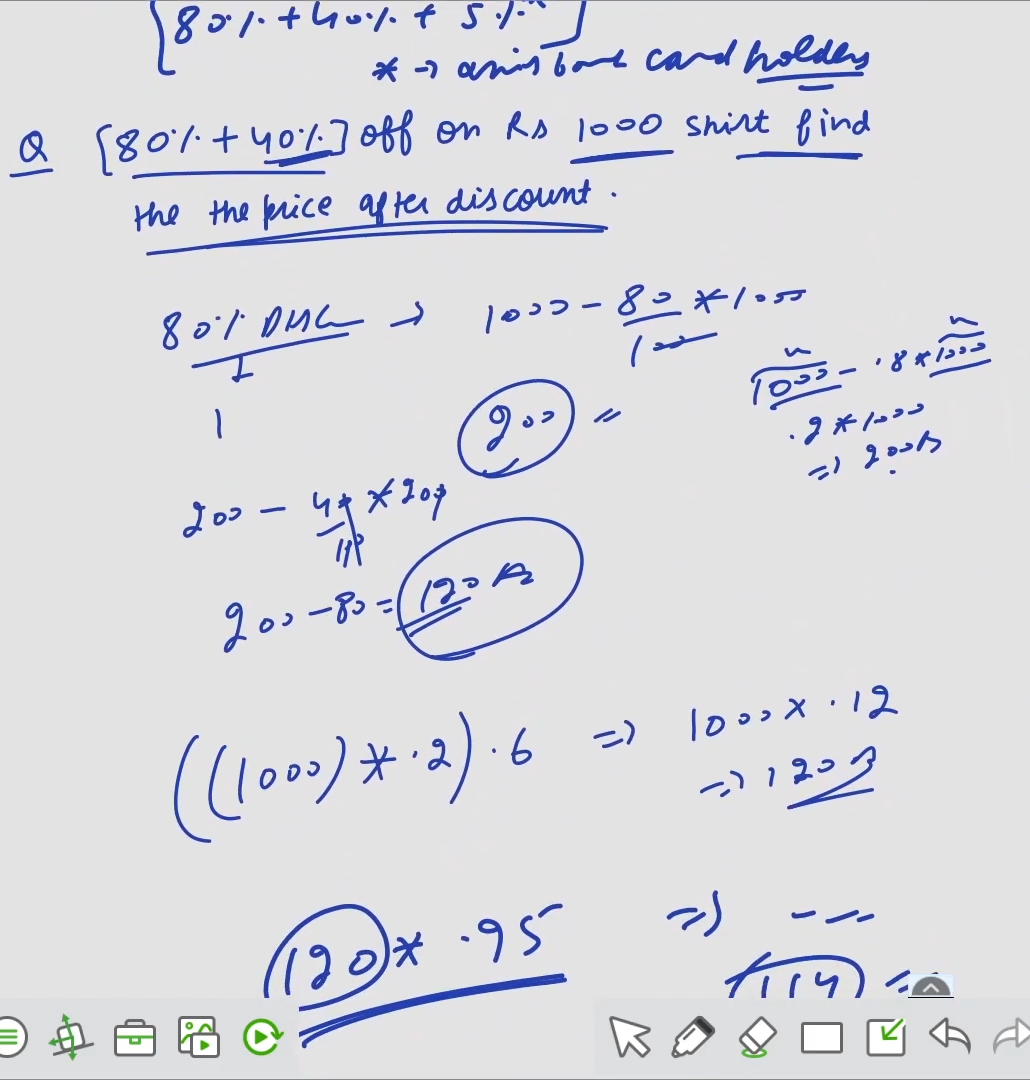 [80% + 40% + 5%*]
* → axis bank card holders
Q [80% + 40%] off on Rs 1000 shirt find
the the price after discount.
80% DISC → 1000 - 80/100 * 1000
1000 - .8 * 1000
1
200 =
.2 * 1000
=> 200 Rs
200 - 40/100 * 200
200 - 80 = 120 Rs
((1000) * .2) .6 => 1000 x .12
=> 120 Rs
120 * .95 => ---
114 =